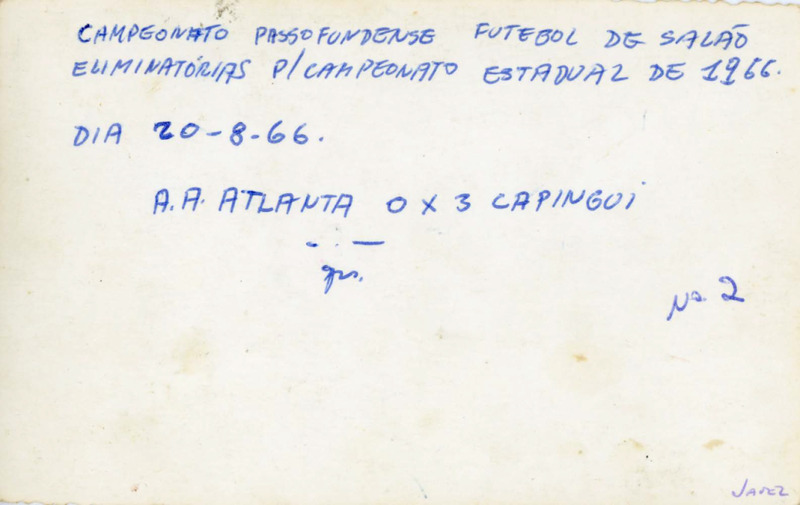 CAMPEONATO PASSOFUNDENSE FUTEBOL DE SALÃO
ELIMINATÓRIAS P/CAMPEONATO ESTADUAL DE 1966.
DIA 20-8-66.
A.A. ATLANTA 0 X 3 CAPINGUI
No. 2